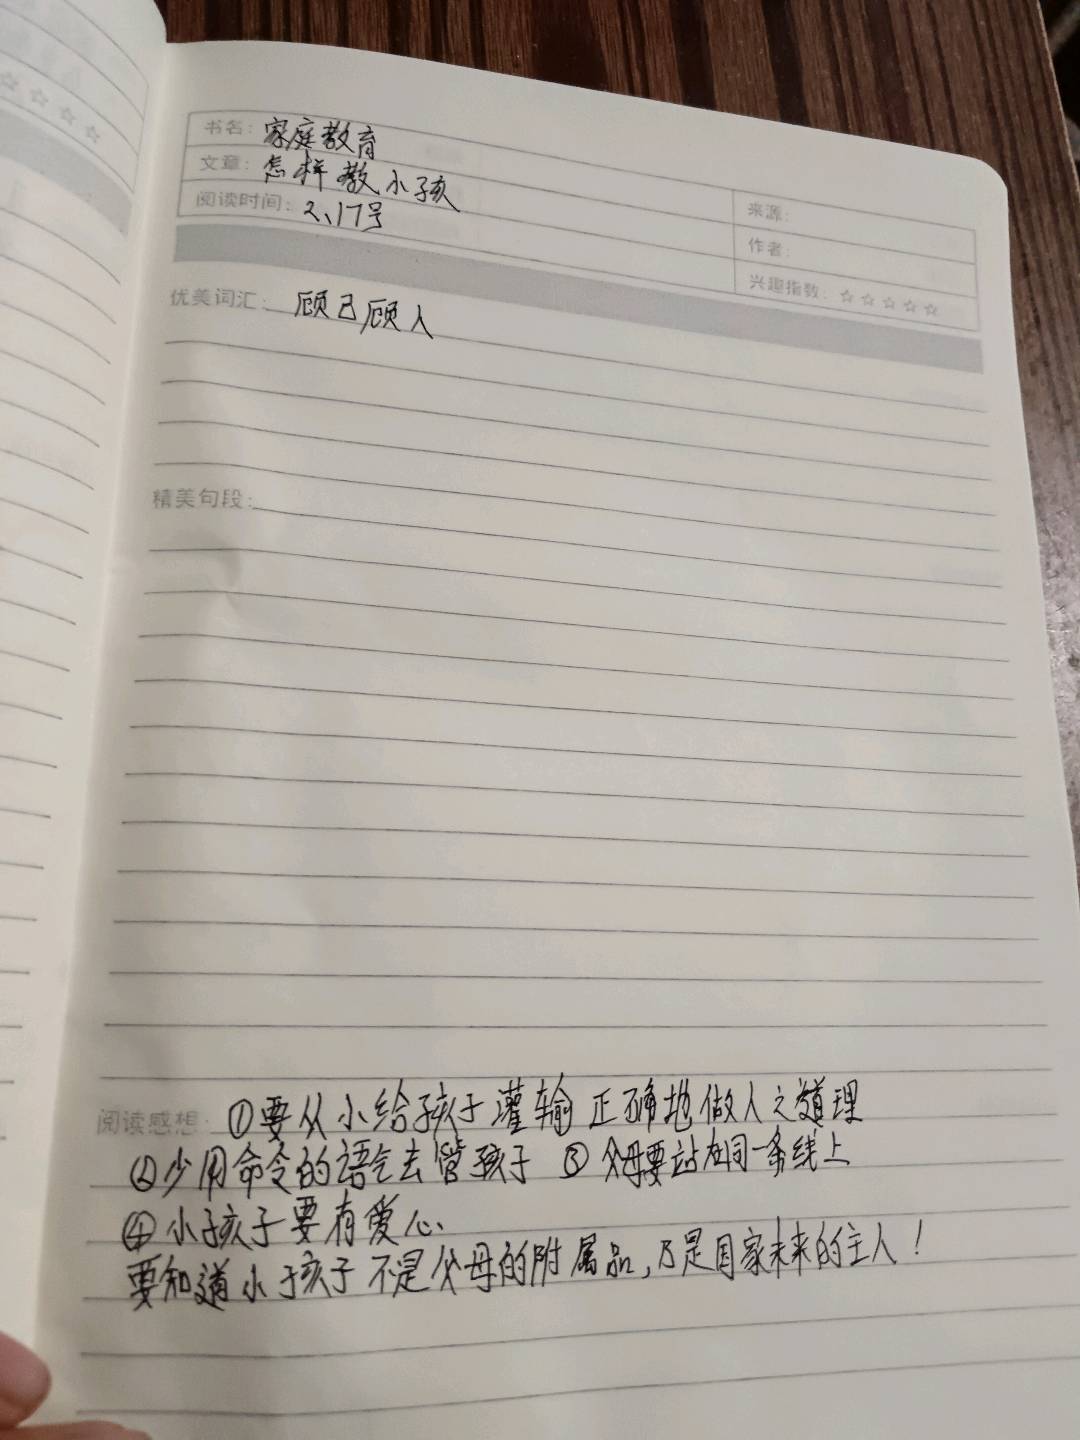 书名：家庭教育
文章：怎样教小孩
来源：
阅读时间：2、17号
作者：
兴趣指数：☆☆☆☆☆
优美词汇：顾己顾人
精美句段：
阅读感想：①要从小给孩子灌输正确地做人之道理
②少用命令的语气去管孩子 ③父母要站在同一条线上
④小孩子要有爱心
要知道小孩子不是父母的附属品，乃是国家未来的主人！